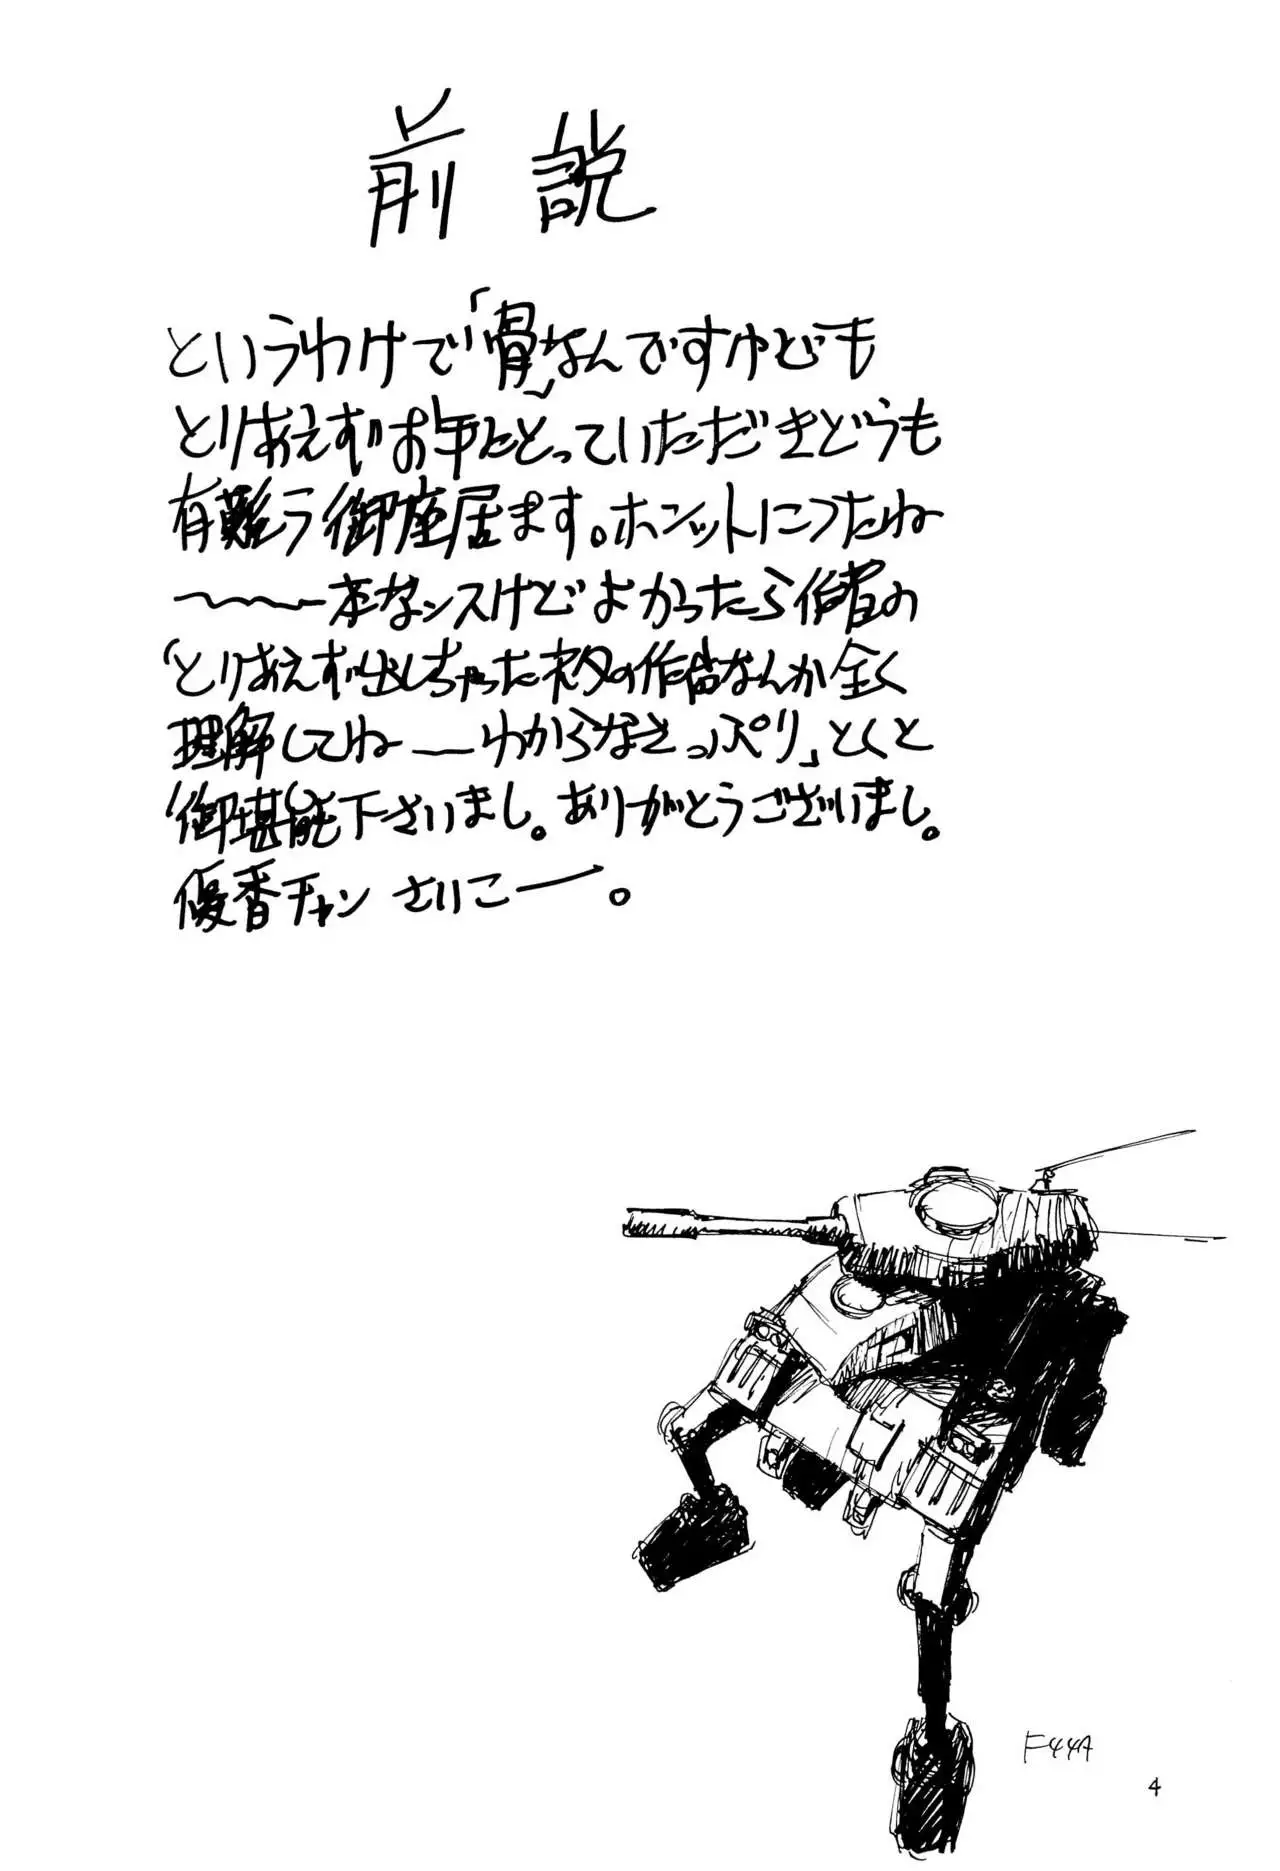 前説
というわけで「骨」なんですけども
とりあえずお手にとっていただきどうも
有難う御座居ます。ホンットにつたね
〜〜〜ー本なンスけどよかったら作者の
「とりあえず出しちゃったネタの作品なんか全く
理解してねーーわからなさっぷり」とくと
御堪能下さいまし。ありがとうございまし。
優香チャン さいこー。
F44A
4